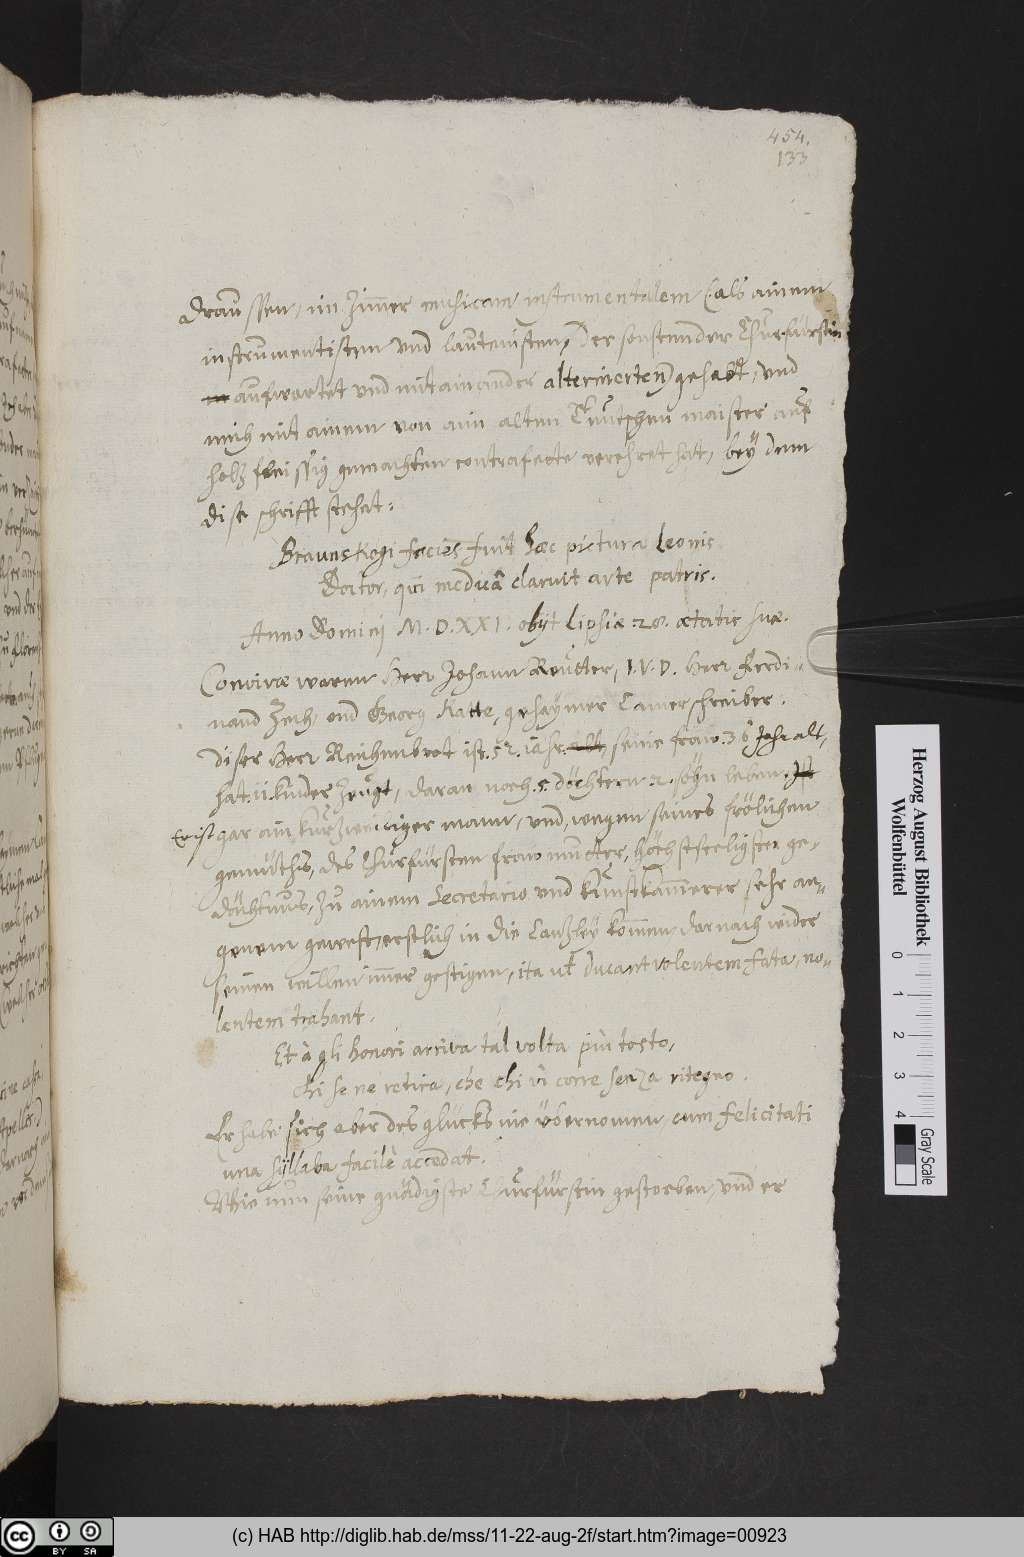 454.
133
draussen, im Zimmer musicam instrumentalem (als ainem
instrumentisten und lautenisten, der sonsten der Churfürstin
aufwartet und mit ainander alternierten) gehabt, und
mich mit ainem von aim alten Teutschen maister auf
holz fleissig gemachten contrafecte verehret hat, bey dem
dise schrifft stehat:
Braunskogi facies fuit haec pictura Leonis
Doctor, qui medicâ claruit arte patris.
Anno Domini M.D.XXI. obijt Lipsiae 28. aetatis suae.
Convivae waren Herr Johann Reütter, I.V.D. Herr Ferdi-
nand Zech, und Georg Katte, gehaymer Camerschreiber.
Diser Herr Reichenbrot ist 52. iahr, seine fraw 36 Jahr alt,
hat 11. kinder Zeügt, daran noch 5. döchtern 2. söhn leben.
Er ist gar ain kurzweiliger mann, und, wegen seines frölichen
gemüths, des Churfürsten fraw mutter, höchstseeligster ge-
dächtnus, zu ainem Secretario und Kunstkammerer sehr an-
genem gewest, erstlich in die Canzley kommen, darnach wider
seinen willen immer gestigen, ita ut ducant volentem fata, no-
lentem trahant.
Et à gli honori arriva tal volta più tosto,
Chi se ne retira, che chi vi corre senza ritegno.
Er habe sich aber des glücks nie übernomen, cum felicitati
una syllaba facilè accedat.
Wie nun seine gnädigste Churfürstin gestorben, und er
Herzog August Bibliothek
Wolfenbüttel
0 1 2 3 4
Gray Scale
cc BY SA
(c) HAB http://diglib.hab.de/mss/11-22-aug-2f/start.htm?image=00923